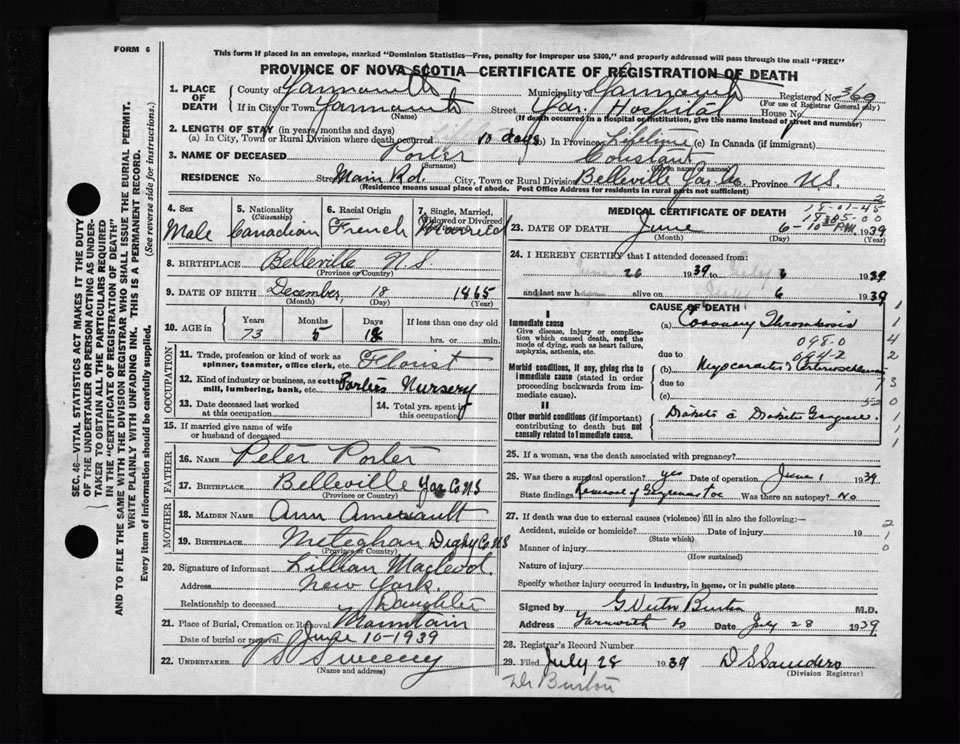 FORM 6
This form if placed in an envelope, marked "Dominion Statistics—Free, penalty for improper use $300," and properly addressed will pass through the mail "FREE"
PROVINCE OF NOVA SCOTIA—CERTIFICATE OF REGISTRATION OF DEATH
1. PLACE OF DEATH County of Yarmouth Municipality of Yarmouth Registered No. 369
(For use of Registrar General only)
If in City or Town Yarmouth Street Yar. Hospital House No.
(Name) (If death occurred in a hospital or institution, give the name instead of street and number)
2. LENGTH OF STAY (in years, months and days)
(a) In City, Town or Rural Division where death occurred 10 days (b) In Province Lifetime (c) In Canada (if immigrant)
3. NAME OF DECEASED Porter Constant
(Surname) (Given name or names)
RESIDENCE No. Street Main Rd. City, Town or Rural Division Belleville Yar. Co. Province N.S.
(Residence means usual place of abode. Post Office Address for residents in rural parts not sufficient)
4. Sex Male
5. Nationality (Citizenship) Canadian
6. Racial Origin French
7. Single, Married, Widowed or Divorced Married
8. BIRTHPLACE Belleville N.S.
(Province or Country)
9. DATE OF BIRTH December 18 1865
(Month) (Day) (Year)
10. AGE in Years 73 Months 5 Days 18 If less than one day old hrs. or min.
OCCUPATION
11. Trade, profession or kind of work as spinner, teamster, office clerk, etc. Florist
12. Kind of industry or business, as cotton mill, lumbering, bank, etc. Porters Nursery
13. Date deceased last worked at this occupation
14. Total yrs. spent in this occupation
15. If married give name of wife or husband of deceased
FATHER
16. Name Peter Porter
17. BIRTHPLACE Belleville Yar Co NS
(Province or Country)
MOTHER
18. MAIDEN NAME Ann Amerault
19. BIRTHPLACE Meteghan Digby Co NS
(Province or Country)
20. Signature of informant Lillian Macleod
Address New York
Relationship to deceased Daughter
21. Place of Burial, Cremation or Removal Mountain
Date of burial or removal June 10-1939
22. UNDERTAKER Sweeny
(Name and address)
MEDICAL CERTIFICATE OF DEATH
18-01-45
23. DATE OF DEATH June 6-10 PM 1939
(Month) (Day) (Year)
24. I HEREBY CERTIFY that I attended deceased from:
26 1939 to 6 1939
and last saw h alive on 6 1939
CAUSE OF DEATH
I
Immediate cause
Give disease, injury or complication which caused death, not the mode of dying, such as heart failure, asphyxia, asthenia, etc.
(a) Coronary Thrombosis
due to
Morbid conditions, if any, giving rise to immediate cause (stated in order proceeding backwards from immediate cause).
(b) Myocarditis & Arteriosclerosis
due to
(c)
II
Other morbid conditions (if important) contributing to death but not causally related to immediate cause.
25. If a woman, was the death associated with pregnancy?
26. Was there a surgical operation? yes Date of operation June 1 1939
State findings Removal of Gangrenous Toe Was there an autopsy? No
27. If death was due to external causes (violence) fill in also the following:—
Accident, suicide or homicide? Date of injury 19
(State which)
Manner of injury
(How sustained)
Nature of injury
Specify whether injury occurred in industry, in home, or in public place
Signed by G Victor Burton M.D.
Address Yarmouth Date July 28 1939
28. Registrar's Record Number
29. Filed July 28 1939 D S Saunders
(Division Registrar)
Dr Burton
SEC. 46—VITAL STATISTICS ACT MAKES IT THE DUTY
OF THE UNDERTAKER OR PERSON ACTING AS UNDER-
TAKER TO OBTAIN ALL THE PARTICULARS REQUIRED
IN THE "CERTIFICATE OF REGISTRATION OF DEATH"
AND TO FILE THE SAME WITH THE DIVISION REGISTRAR WHO SHALL ISSUE THE BURIAL PERMIT.
WRITE PLAINLY WITH UNFADING INK. THIS IS A PERMANENT RECORD.
Every item of information should be carefully supplied. (See reverse side for instructions.)